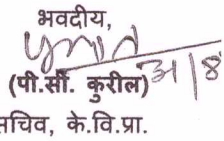 भवदीय,
(पी.सी. कुरील)
सचिव, के.वि.प्रा.